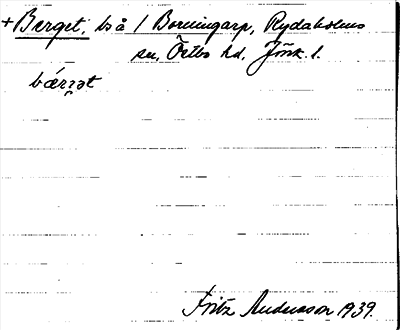 + Berget, bs å / Borningarp, Rydaholms
sn, Östbo hd, Jönk. l.
bǽrːət
Fritz Andersson 1939.